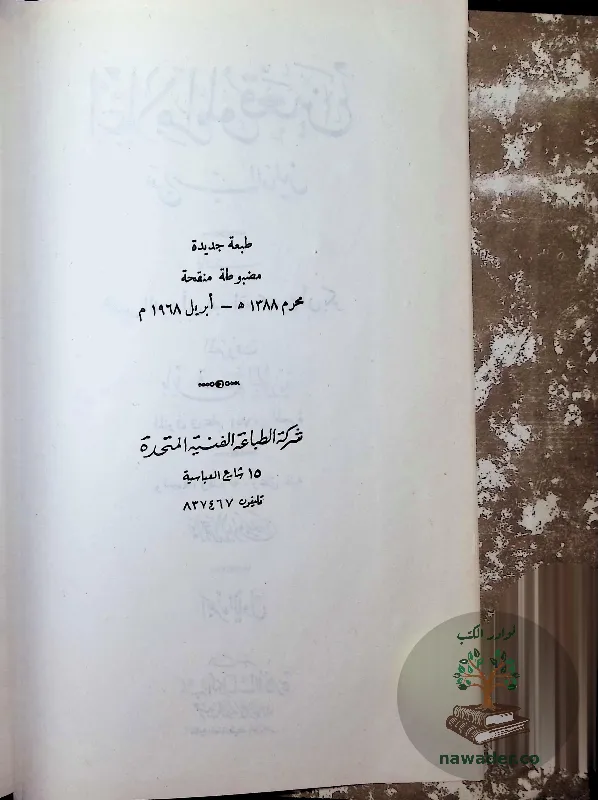 طبعة جديدة
مضبوطة منقحة
محرم ١٣٨٨ هـ – أبريل ١٩٦٨ م
شركة الطباعة الفنية المتحدة
١٥ شارع العباسية
تليفون ٨٣٧٤٦٧
نوادر الكتب
nawader.co